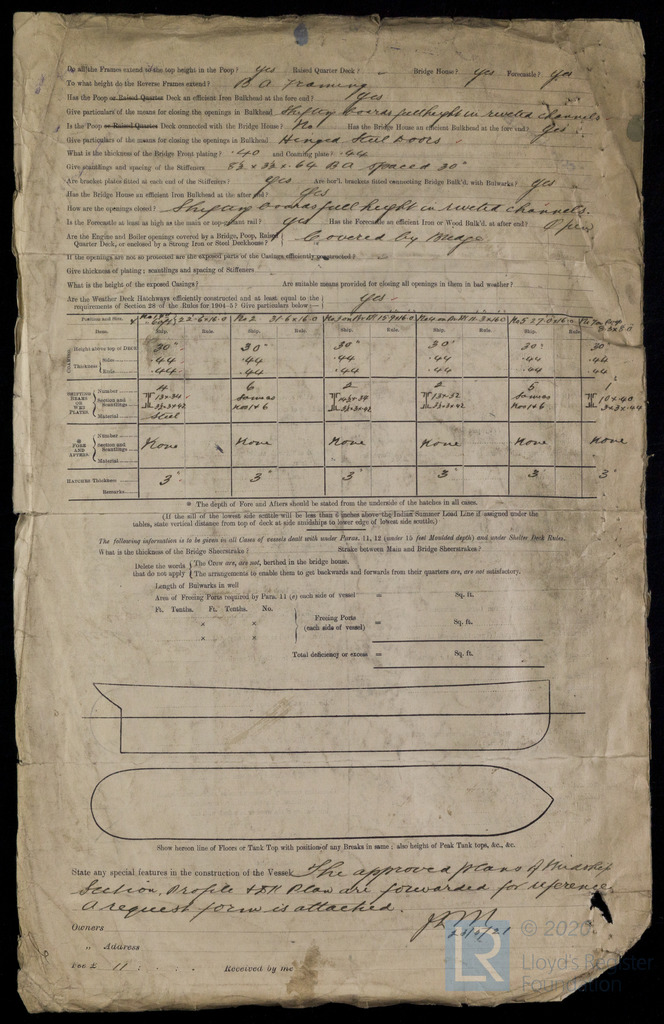 Do all the Frames extend to the top height in the Poop? yes Raised Quarter Deck? - Bridge House? yes Forecastle? yes
To what height do the Reverse Frames extend? B A Framing
Has the Poop or Raised Quarter Deck an efficient Iron Bulkhead at the fore end? yes
Give particulars of the means for closing the openings in Bulkhead Shifting boards full height in riveted channels
Is the Poop or Raised Quarter Deck connected with the Bridge House? No Has the Bridge House an efficient Bulkhead at the fore end? yes
Give particulars of the means for closing the openings in Bulkhead Hinged Steel Doors
What is the thickness of the Bridge Front plating? .40 and Coaming plate? .44
Give scantlings and spacing of the Stiffeners BA spaced 30"
Are bracket plates fitted at each end of the Stiffeners? yes Are hor'l. brackets fitted connecting Bridge Bulk'd. with Bulwarks? yes
Has the Bridge House an efficient Iron Bulkhead at the after end? yes
How are the openings closed? Shifting boards full height in riveted channels.
Is the Forecastle at least as high as the main or top-gallant rail? yes Has the Forecastle an efficient Iron or Wood Bulk'd. at after end? Open
Are the Engine and Boiler openings covered by a Bridge, Poop, Raised
Quarter Deck, or enclosed by a Strong Iron or Steel Deckhouse? Covered by Bridge
If the openings are not so protected are the exposed parts of the Casings efficiently constructed?
Give thickness of plating; scantlings and spacing of Stiffeners
What is the height of the exposed Casings? Are suitable means provided for closing all openings in them in bad weather?
Are the Weather Deck Hatchways efficiently constructed and at least equal to the
requirements of Section 28 of the Rules for 1904-5? Give particulars below:— yes.
Position and Size. 22-6x16.0 No 2 31-6x16.0 15-9x16.0 No 5 27-0x16.0
Item. Ship. Rule. Ship. Rule. Ship. Rule. Ship. Rule. Ship. Rule.
COAMINGS Height above top of Deck 30" 30" 30" 30" 30" 30
Thickness Sides .44 .44 .44 .44 .44 .44
Ends .44 .44 .44 .44 .44 .44
SHIFTING BEAMS OR WEB PLATES. Number 4 6 2 2 5 1
Section and Scantlings Same as Nos 1 & 6 Same as Nos 1 & 6
Material Steel
* FORE AND AFTERS. Number
Section and Scantlings None None None None None None
Material
HATCHES Thickness 3" 3" 3" 3" 3" 3"
Remarks
* The depth of Fore and Afters should be stated from the underside of the hatches in all cases.
(If the sill of the lowest side scuttle will be less than 6 inches above the Indian Summer Load Line if assigned under the
tables, state vertical distance from top of deck at side amidships to lower edge of lowest side scuttle.)
The following information is to be given in all Cases of vessels dealt with under Paras. 11, 12 (under 15 feet Moulded depth) and under Shelter Deck Rules.
What is the thickness of the Bridge Sheerstrake? Strake between Main and Bridge Sheerstrakes?
Delete the words The Crew are, are not, berthed in the bridge house.
that do not apply The arrangements to enable them to get backwards and forwards from their quarters are, are not satisfactory.
Length of Bulwarks in well
Area of Freeing Ports required by Para. 11 (e) each side of vessel = Sq. ft.
Ft. Tenths. Ft. Tenths. No.
× × Freeing Ports
(each side of vessel) = Sq. ft.
× ×
Total deficiency or excess = Sq. ft.
Show hereon line of Floors or Tank Top with position of any Breaks in same; also height of Peak Tank tops, &c., &c.
State any special features in the construction of the Vessel The approved plans of Midship
Section, Profile & Dk Plan are forwarded for reference
A request form is attached.
Owners
" Address
Fee £ 11 : : Received by me
© 2020
LR Lloyd's Register
Foundation